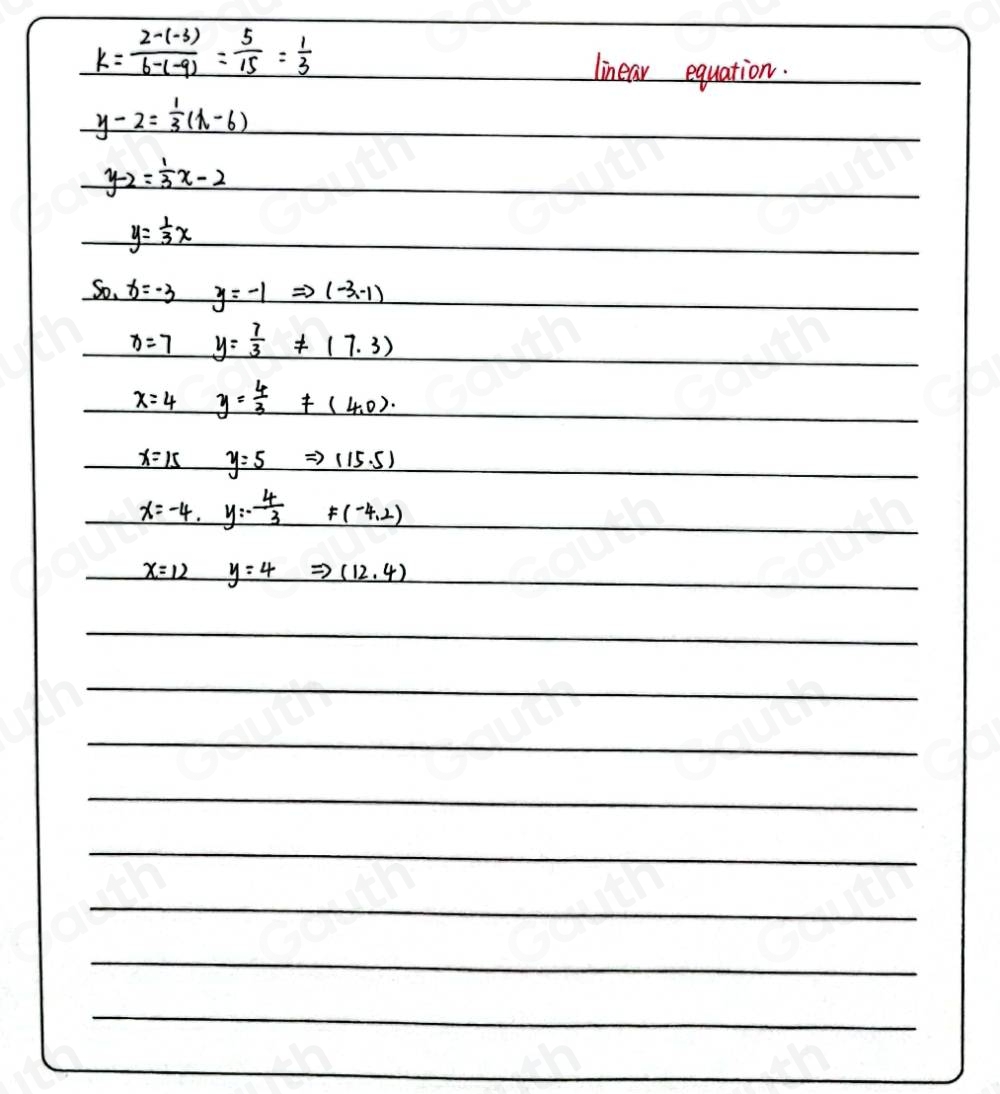 k = \frac{2-(-3)}{6-(-9)} = \frac{5}{15} = \frac{1}{3}
linear equation.
y - 2 = \frac{1}{3}(x - 6)
y - 2 = \frac{1}{3}x - 2
y = \frac{1}{3}x
So, x = -3 y = -1 ⇒ (-3,-1)
x = 7 y = \frac{7}{3} ≠ (7.3)
x = 4 y = \frac{4}{3} ≠ (4,0).
x = 15 y = 5 ⇒ (15.5)
x = -4. y = -\frac{4}{3} ≠ (-4,2)
x = 12 y = 4 ⇒ (12.4)
Gauth